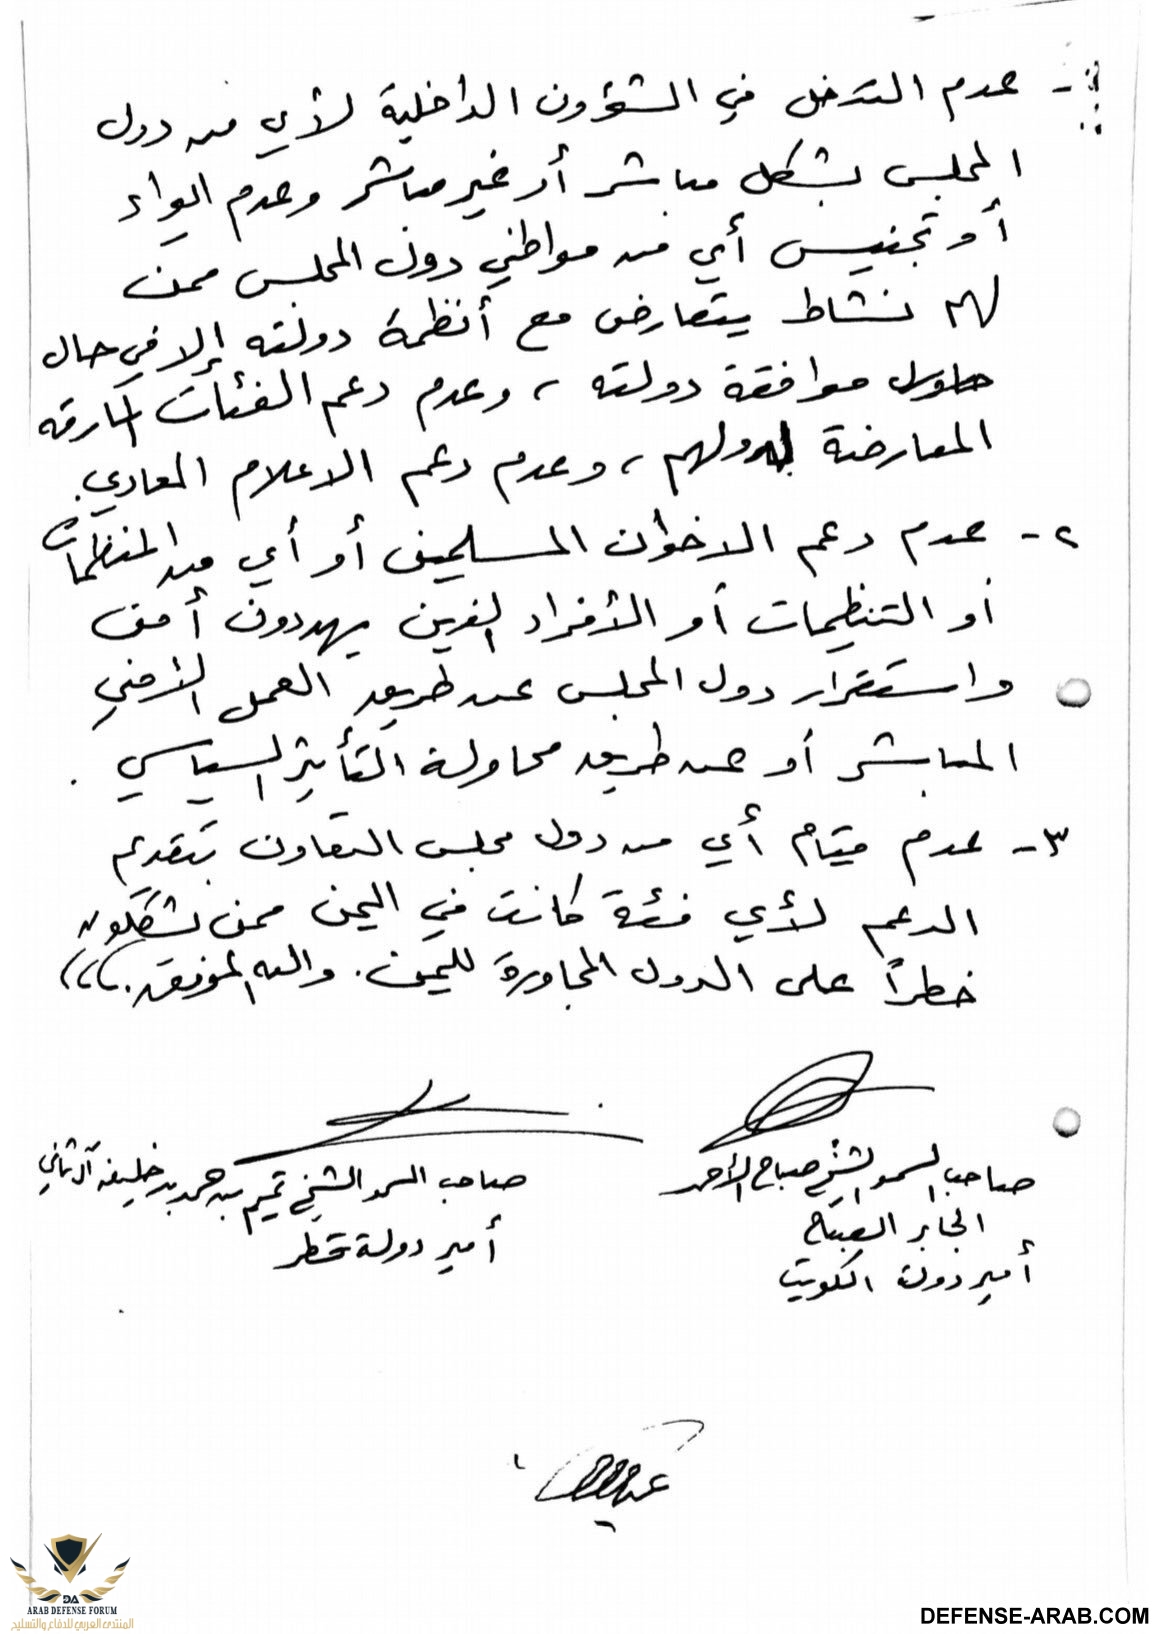 ١- عدم التدخل في الشؤون الداخلية لأي من دول
المجلس بشكل مباشر أو غير مباشر وعدم ايواء
أو تجنيس أي من مواطني دول المجلس ممن
لهم نشاط يتعارض مع أنظمة دولته إلا في حال
موافقة دولته ، وعدم دعم الفئات المارقه
المعارضة لدولهم ، وعدم دعم الاعلام المعادي .
٢- عدم دعم الاخوان المسلمين أو أي من المنظمات
أو التنظيمات أو الأفراد الذين يهددون أمن
واستقرار دول المجلس عن طريق العمل الأمني
المباشر أو عن طريق محاولة التأثير السياسي .
٣- عدم قيام أي من دول مجلس التعاون بتقديم
الدعم لأي فئة كانت في اليمن ممن يشكلون
خطراً على الدول المجاورة لليمن . والله الموفق .،،،
صاحب السمو الشيخ صباح الأحمد
الجابر الصباح
أمير دولة الكويت
صاحب السمو الشيخ تميم بن حمد بن خليفه آل ثاني
أمير دولة قطر
DA
ARAB DEFENSE FORUM
المنتدى العربي للدفاع والتسليح
DEFENSE-ARAB.COM